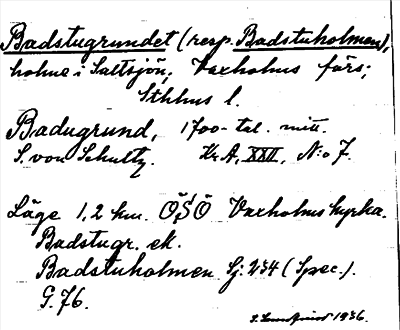 Badstugrundet (resp. Badstuholmen),
holme i Saltsjön; Vaxholms förs;
Sthlms l.
Badugrund, 1700-tal. mitt.
S. von Schultz. Kr A, XXII, N:o 7.
Läge 1,2 km. ÖSÖ Vaxholms kyrka.
Badstugr. ek.
Badstuholmen Sj. 234 (Spec.).
G. 76.
1936.